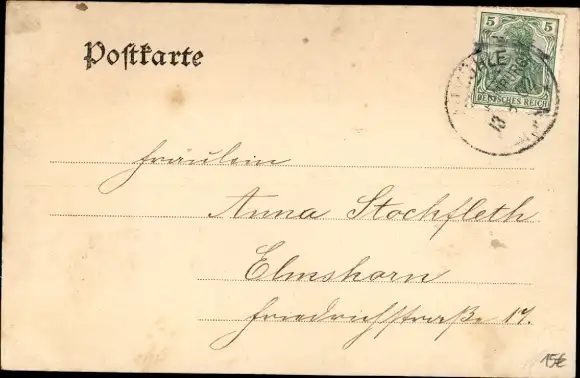 Postkarte
5 5
DEUTSCHES REICH
Fräulein
Anna Stockfleth
Elmshorn
Friedrichstraße 17.
15€